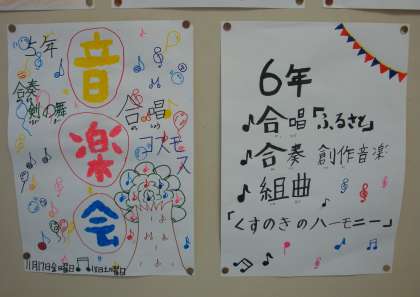 5年
音楽会
合奏
剣の舞
合唱
コスモス
11月17日金曜日 18日土曜日
6年
合唱「ふるさと」
合奏 創作音楽
組曲
「くすのきのハーモニー」